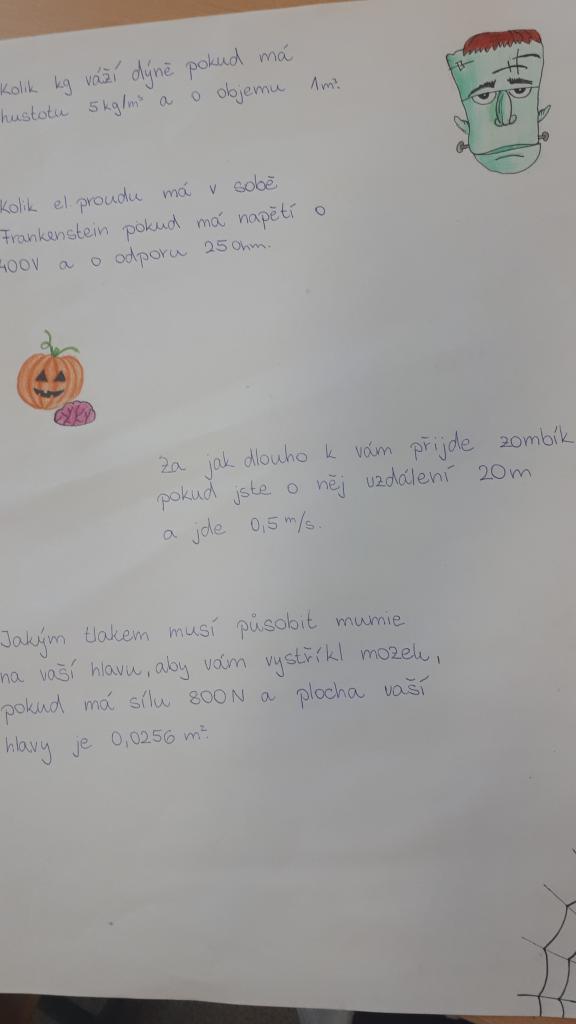 Kolik kg váží dýně pokud má
hustotu 5 kg/m³ a o objemu 1m³.
Kolik el. proudu má v sobě
Frankenstein pokud má napětí o
400V a o odporu 25 Ohm.
Za jak dlouho k vám přijde zombík
pokud jste o něj vzdálení 20m
a jde 0,5 m/s.
Jakým tlakem musí působit mumie
na vaší hlavu, aby vám vystříkl mozek,
pokud má sílu 800N a plocha vaší
hlavy je 0,0256 m².